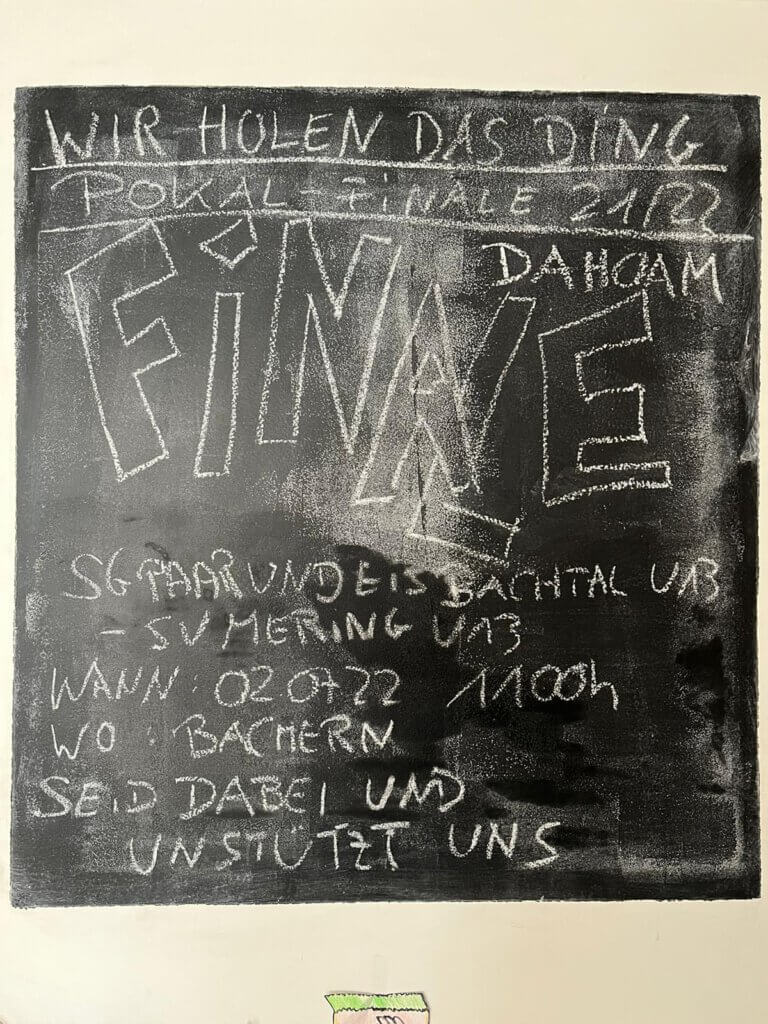 WIR HOLEN DAS DING
POKAL-FINALE 21/22
DAHOAM
FINALE
SG PAAR UND EISBACHTAL U13
- SV MERING U13
WANN: 02 07 22 11 00h
WO: BACHERN
SEID DABEI UND
UNSTÜTZT UNS